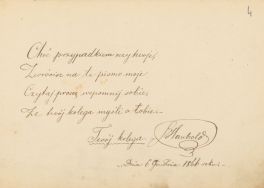 4
Choć przypadkiem oczy twoje,
Zwrócisz na te pismo moje
Czytaj proszę wspomnij sobie,
Że twój kolega myśli o tobie.
Twój kolega
Dnia 6 Grudnia 1866 roku.